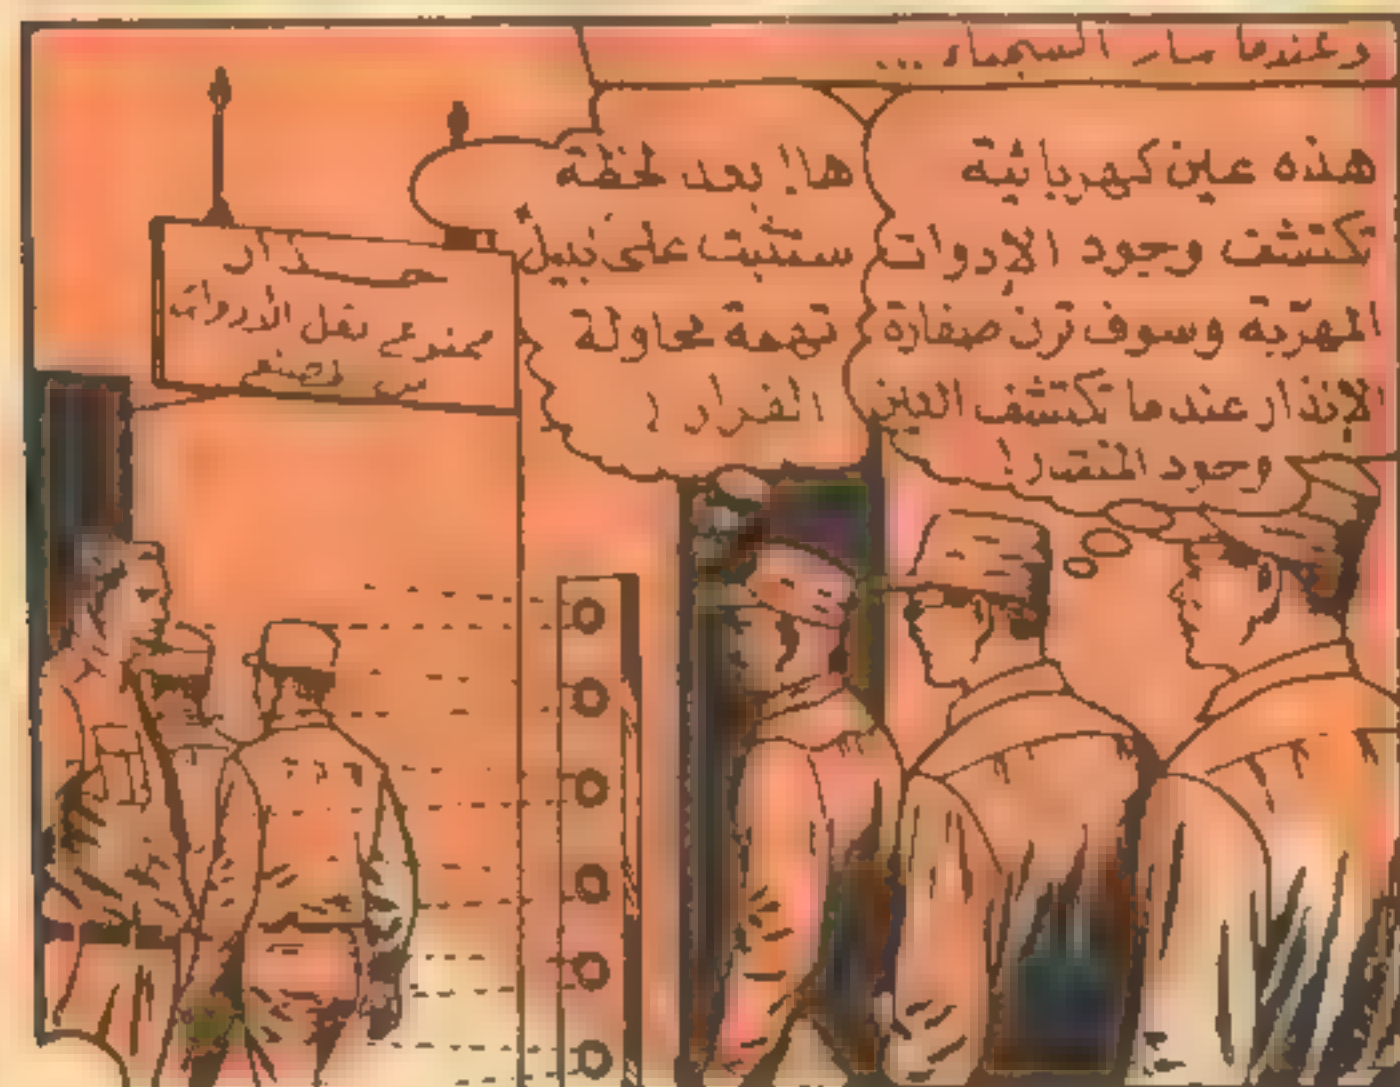 وعندما سار السجناء ...
هذه عين كهربائية
تكتشف وجود الادوات
المهرّبة وسوف ترن صفارة
الإنذار عندما تكتشف العين
وجود المنشار!
ها! بعد لحظة
ستثبت على نبيل
تهمة محاولة
الفرار !
حذار
ممنوع نقل الأدوات